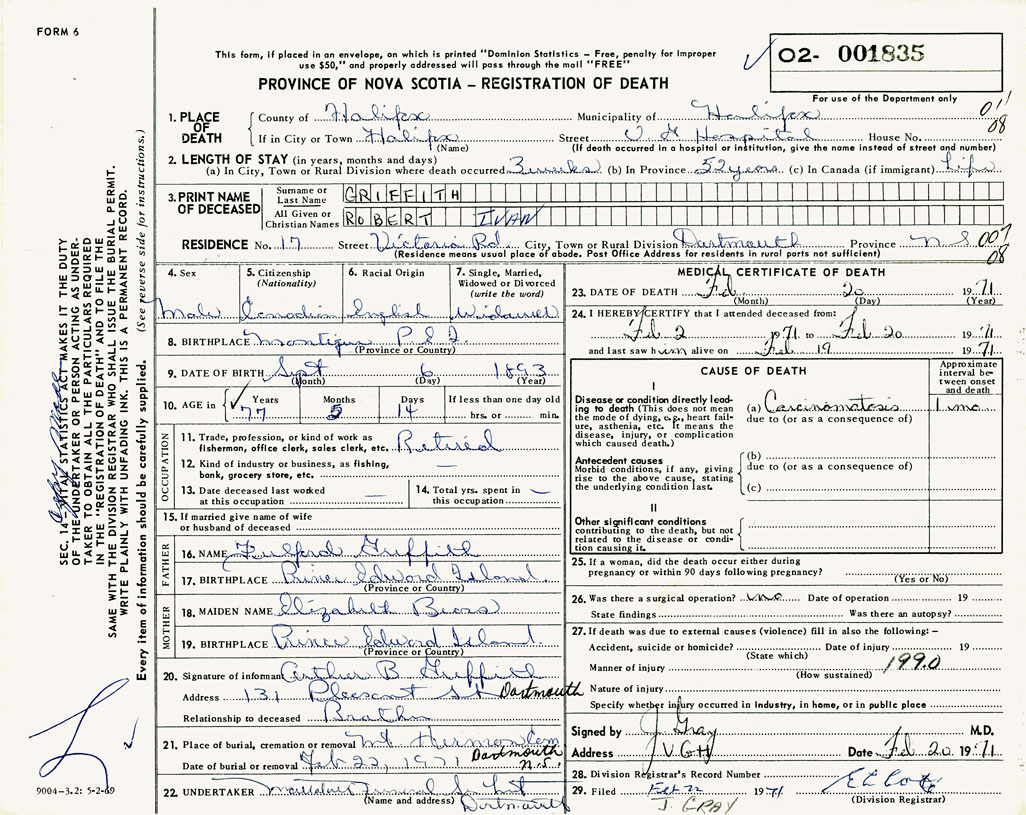 FORM 6
This form, if placed in an envelope, on which is printed "Dominion Statistics – Free, penalty for improper
use $50," and properly addressed will pass through the mail "FREE"
02- 001835
For use of the Department only
PROVINCE OF NOVA SCOTIA – REGISTRATION OF DEATH
011
08
1. PLACE OF DEATH
County of Halifax Municipality of Halifax
If in City or Town Halifax Street V G Hospital House No.
(Name) (If death occurred in a hospital or institution, give the name instead of street and number)
2. LENGTH OF STAY (in years, months and days)
(a) In City, Town or Rural Division where death occurred 3 weeks (b) In Province 52 years (c) In Canada (if immigrant) Life
3. PRINT NAME OF DECEASED
Surname or Last Name GRIFFITH
All Given or Christian Names ROBERT IVAN
RESIDENCE No. 17 Street Victoria Rd. City, Town or Rural Division Dartmouth Province N S 007
08
(Residence means usual place of abode. Post Office Address for residents in rural parts not sufficient)
4. Sex
Male
5. Citizenship
(Nationality)
Canadian
6. Racial Origin
English
7. Single, Married,
Widowed or Divorced
(write the word)
Widowed
8. BIRTHPLACE Montigue P E I.
(Province or Country)
9. DATE OF BIRTH Sept 6 1893
(Month) (Day) (Year)
10. AGE in Years Months Days If less than one day old
77 5 14 hrs. or min.
OCCUPATION
11. Trade, profession, or kind of work as
fisherman, office clerk, sales clerk, etc. Retired
12. Kind of industry or business, as fishing,
bank, grocery store, etc. —
13. Date deceased last worked
at this occupation —
14. Total yrs. spent in
this occupation —
15. If married give name of wife
or husband of deceased
FATHER
16. NAME Fulford Griffith
17. BIRTHPLACE Prince Edward Island.
(Province or Country)
MOTHER
18. MAIDEN NAME Elizabeth Beers
19. BIRTHPLACE Prince Edward Island.
(Province or Country)
20. Signature of informant Arthur B Griffith
Address 131 Pleasant St Dartmouth
Relationship to deceased Brother
21. Place of burial, cremation or removal Mt Hermon Cem
Dartmouth
Date of burial or removal Feb 22, 1971 N.S.
22. UNDERTAKER Funeral
(Name and address) Dartmouth
MEDICAL CERTIFICATE OF DEATH
23. DATE OF DEATH Feb 20 1971
(Month) (Day) (Year)
24. I HEREBY CERTIFY that I attended deceased from:
Feb 2 1971 to Feb 20 1971
and last saw him alive on Feb 19 1971
CAUSE OF DEATH
Approximate
interval be-
tween onset
and death
I
Disease or condition directly lead-
ing to death (This does not mean
the mode of dying, e.g., heart fail-
ure, asthenia, etc. It means the
disease, injury, or complication
which caused death.)
(a) Carcinomatosis 1 mo.
due to (or as a consequence of)
Antecedent causes
Morbid conditions, if any, giving
rise to the above cause, stating
the underlying condition last.
(b)
due to (or as a consequence of)
(c)
II
Other significant conditions
contributing to the death, but not
related to the disease or condi-
tion causing it.
25. If a woman, did the death occur either during
pregnancy or within 90 days following pregnancy?
(Yes or No)
26. Was there a surgical operation? no Date of operation 19
State findings Was there an autopsy?
27. If death was due to external causes (violence) fill in also the following: –
Accident, suicide or homicide? Date of injury 19
(State which)
Manner of injury 199.0
(How sustained)
Nature of injury
Specify whether injury occurred in industry, in home, or in public place
Signed by J Gray M.D.
Address V.G.H Date Feb 20 1971
28. Division Registrar's Record Number
29. Filed Feb 22 1971
(Division Registrar)
J. GRAY
SEC. 14 – VITAL STATISTICS ACT MAKES IT THE DUTY
OF THE UNDERTAKER OR PERSON ACTING AS UNDER-
TAKER TO OBTAIN ALL THE PARTICULARS REQUIRED
IN THE "REGISTRATION OF DEATH" AND TO FILE THE
SAME WITH THE DIVISION REGISTRAR WHO SHALL ISSUE THE BURIAL PERMIT.
WRITE PLAINLY WITH UNFADING INK. THIS IS A PERMANENT RECORD.
Every item of information should be carefully supplied. (See reverse side for instructions.)
9004-3.2: 5-2-69